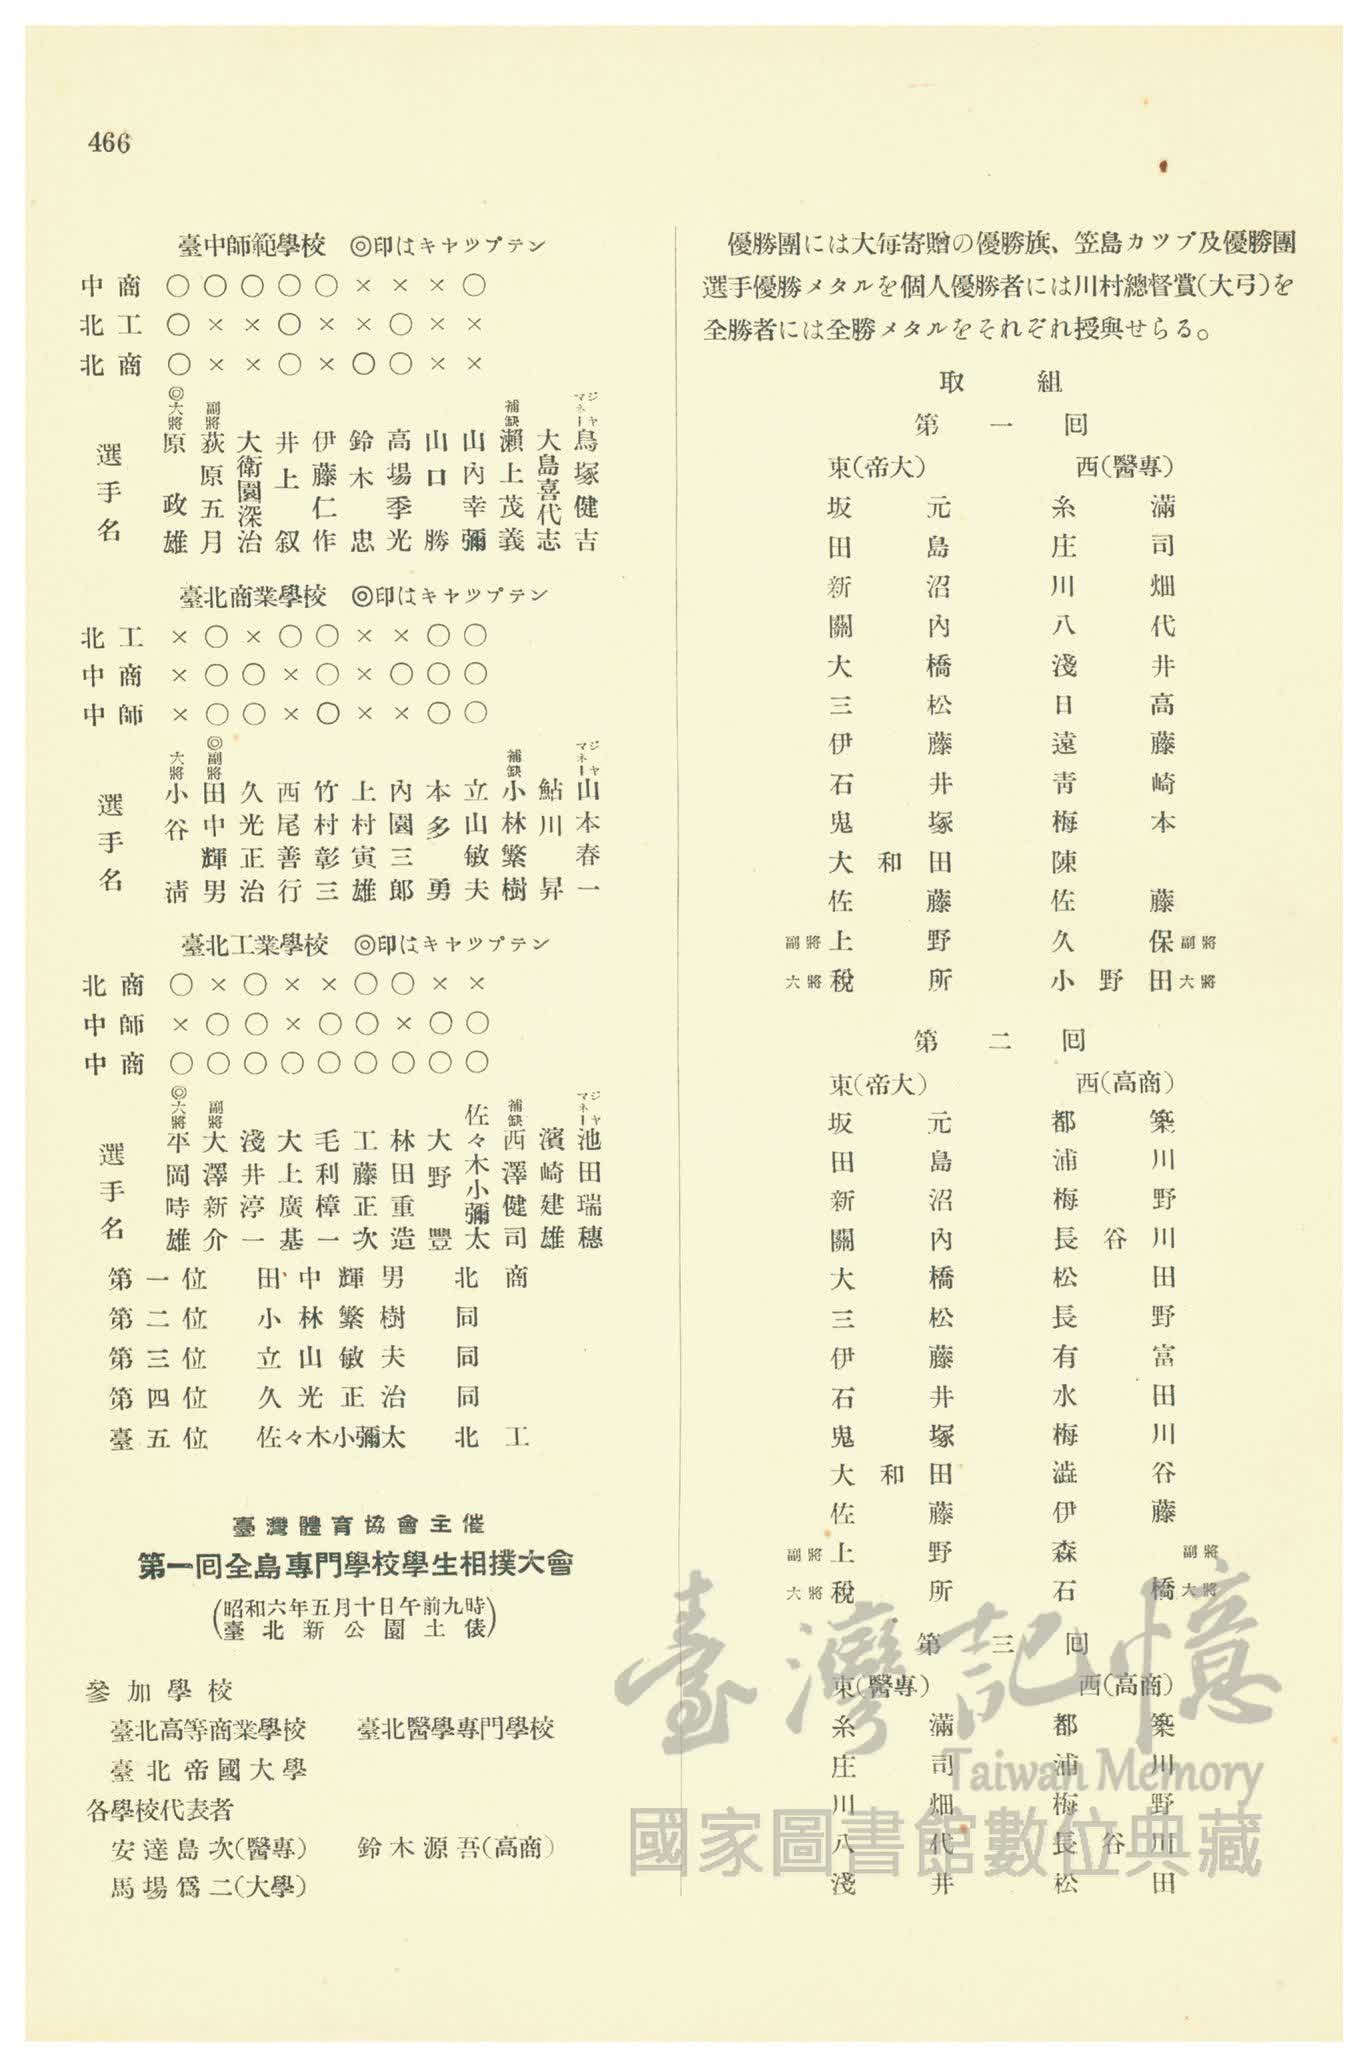 466
臺中師範學校　◎印はキャツプテン
中商　○○○○○×××○
北工　○××○××○××
北商　○××○×○○××
選手名
◎大將 原政雄
副將 萩原五月
大衛園深治
井上叙
伊藤仁作
鈴木忠
高場季光
山口勝
山內幸彌
補缺 瀨上茂義
大島喜代志
マネージャ 鳥塚健吉
臺北商業學校　◎印はキャツプテン
北工　×○×○○××○○
中商　×○○×○×○○○
中師　×○○×○××○○
選手名
大將 小谷淸
◎副將 田中輝男
久光正治
西尾善行
竹村彰三
上村寅雄
內園三郎
本多勇
立山敏夫
補缺 小林繁樹
鮎川昇
マネージャ 山本春一
臺北工業學校　◎印はキャツプテン
北商　○×○××○○××
中師　×○○×○○×○○
中商　○○○○○○○○○
選手名
◎大將 平岡時雄
副將 大澤新介
淺井淳一
大上廣基
毛利樟一
工藤正次
林田重造
大野豐
佐々木小彌太
補缺 西澤健司
濱崎建雄
マネージャ 池田瑞穗
第一位　田中輝男　北商
第二位　小林繁樹　同
第三位　立山敏夫　同
第四位　久光正治　同
臺五位　佐々木小彌太　北工
臺灣體育協會主催
第一回全島專門學校學生相撲大會
(昭和六年五月十日午前九時
臺北新公園土俵)
參加學校
臺北高等商業學校　臺北醫學專門學校
臺北帝國大學
各學校代表者
安達島次(醫專)　鈴木源吾(高商)
馬場爲二(大學)
優勝團には大每寄贈の優勝旗、笠島カツプ及優勝團
選手優勝メタルを個人優勝者には川村總督賞(大弓)を
全勝者には全勝メタルをそれぞれ授與せらる。
取組
第一回
東(帝大)　西(醫專)
坂元　糸滿
田島　庄司
新沼　川畑
關內　八代
大橋　淺井
三松　日高
伊藤　遠藤
石井　靑崎
鬼塚　梅本
大和田　陳
佐藤　佐藤
副將 上野　久保 副將
六將 稅所　小野田 大將
第二回
東(帝大)　西(高商)
坂元　都築
田島　浦川
新沼　梅野
關內　長谷川
大橋　松田
三松　長野
伊藤　有富
石井　水田
鬼塚　梅川
大和田　澁谷
佐藤　伊藤
副將 上野　森 副將
大將 稅所　石橋 大將
第三回
東(醫專)　西(高商)
糸滿　都築
庄司　浦川
川畑　梅野
八代　長谷川
淺井　松田
臺灣記憶
Taiwan Memory
國家圖書館數位典藏